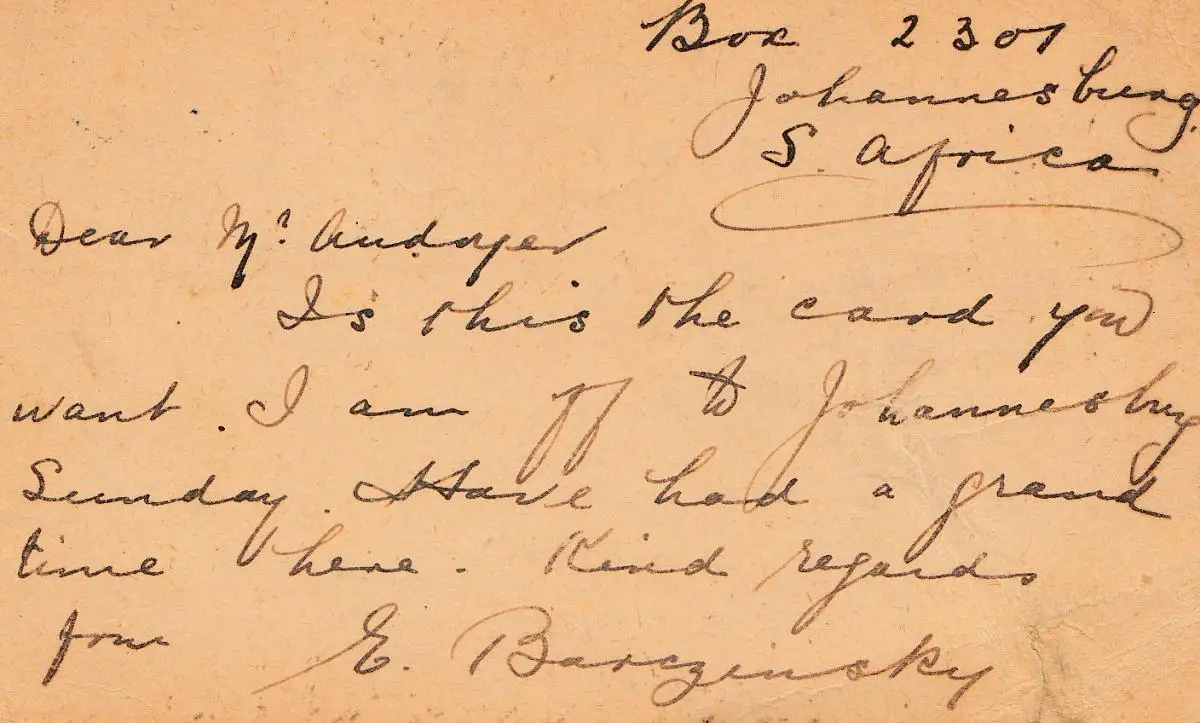 Box 2301
Johannesburg
S. Africa
Dear Mr. Andoyer
Is this the card you
want. I am off to Johannesburg
Sunday. Have had a grand
time here. Kind regards
from E. Barczinsky